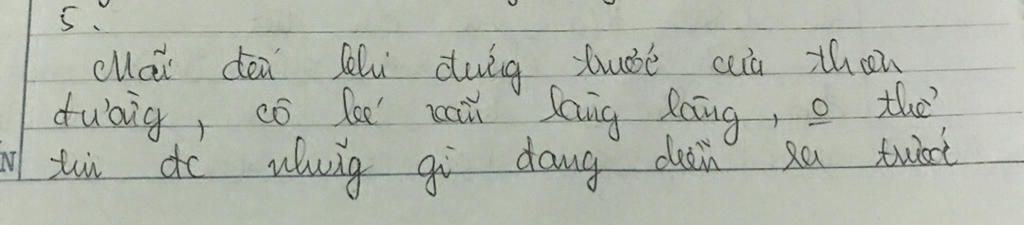 5.
Mãi đến khi đứng trước cửa thiên
đường, cô bé vẫn lẳng lặng, o thể
tin đc những gì đang diễn ra trước